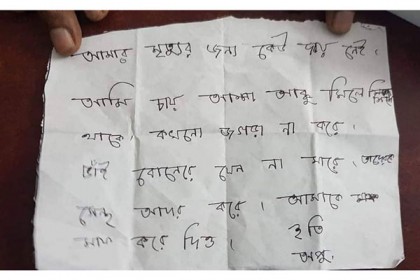 আমার মৃত্যুর জন্য কেউ দায় নেই।
আমি চায় আম্মা আব্বু মিলে মিশে
থাকে। কখনো জগরা না করে।
ভাই বোনেরে যেন না মারে।
আদর করে। আমাকে
মাপ করে দিও।
ইতি
অপু।